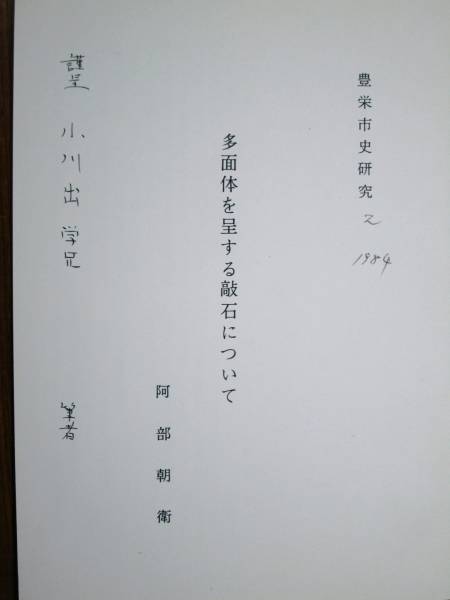 豊栄市史研究 2 1984
多面体を呈する敲石について
阿部朝衛
謹呈 小川出学兄 筆者